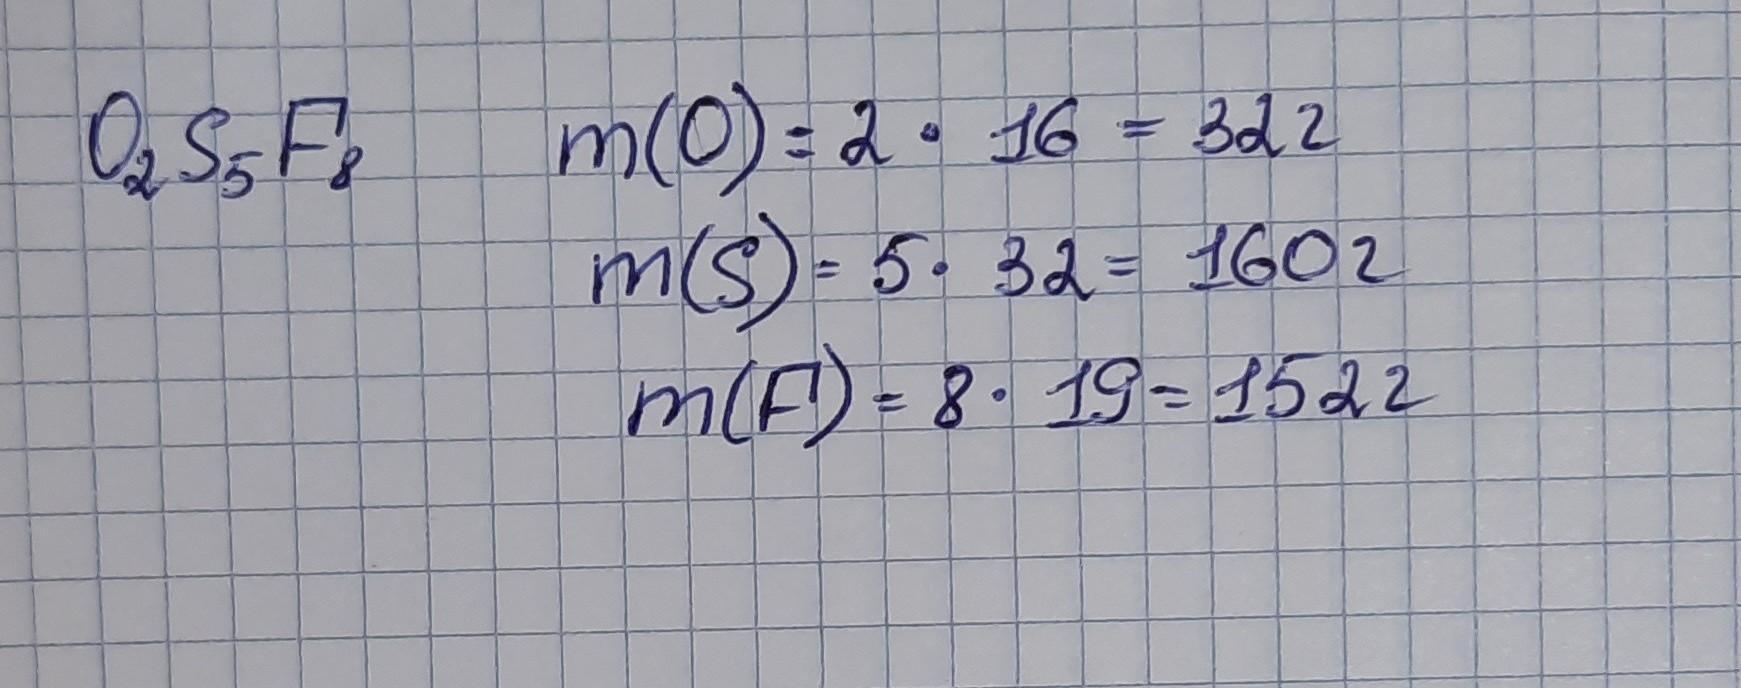 O₂S₅F₈ m(O) = 2 · 16 = 32г
m(S) = 5 · 32 = 160г
m(F) = 8 · 19 = 152г